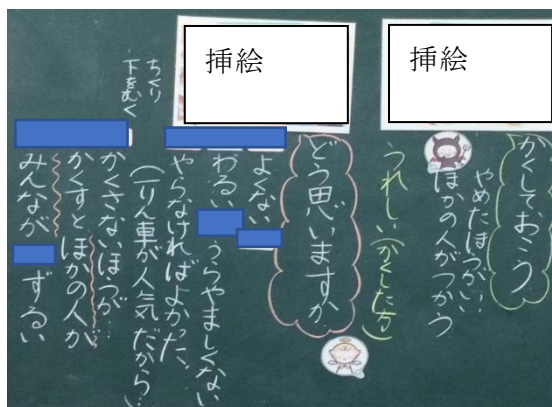 挿絵
挿絵
かくしておこう
やめたほうがいい
ほかの人がつかう
うれしい(かくした方)
どう思いますか
よくない
わるい
うらやましくない
やらなければよかった、
(一りん車が人気だから!)
ちくり
下をむく
かくさないほうが…
かくすとほかの人が…
みんなが
ずるい